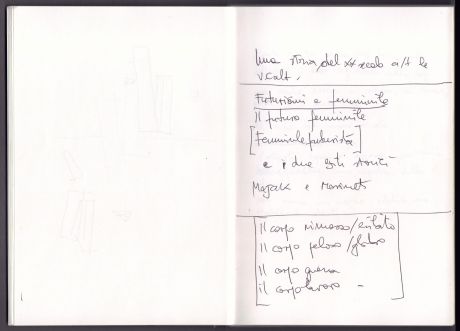 Una storia del XX secolo a/t le
v.calt.
Futurismi e femminile
Il futuro femminile
[Femminile futurista]
e i due esiti storici
e Marinetti
Il corpo rimosso/
Il corpo peloso/glabro
Il corpo guerra
il corpo lavoro -